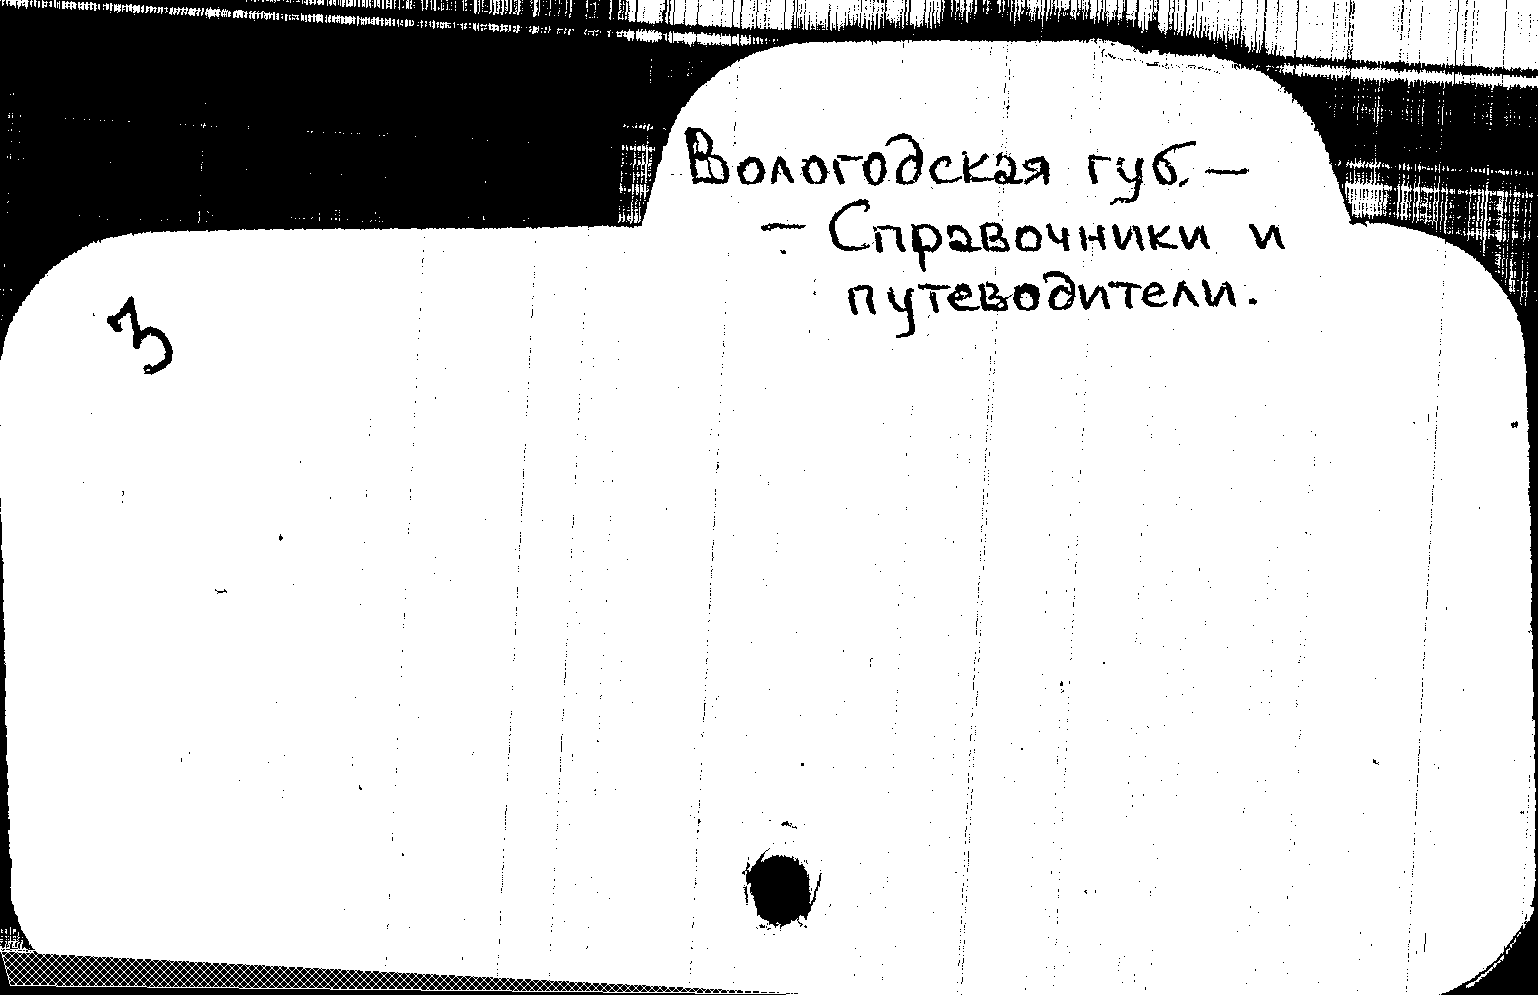 Вологодская губ. –
– Справочники и
путеводители.
3